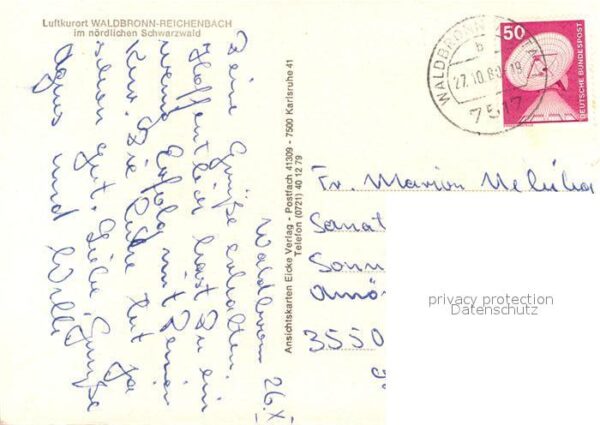 Luftkurort WALDBRONN-REICHENBACH
im nördlichen Schwarzwald
Waldbronn 26.X.
Deine Grüße erhalten.
Hoffentlich hast Du ein
wenig Erfolg mit Deiner
Kur. Die Ruhe tut ja
schon gut. Liebe Grüße
Agnes und Willi
Ansichtskarten Eicke Verlag - Postfach 41309 - 7500 Karlsruhe 41
Telefon (0721) 40 12 79
WALDBRONN
b
27.10.80.19
7517
50
DEUTSCHE BUNDESPOST
Fr. Marion
Sanat
Sonn
Amö
3550
privacy protection
Datenschutz